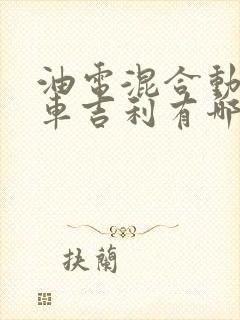 油電混合動
車吉利有哪
抉蘭